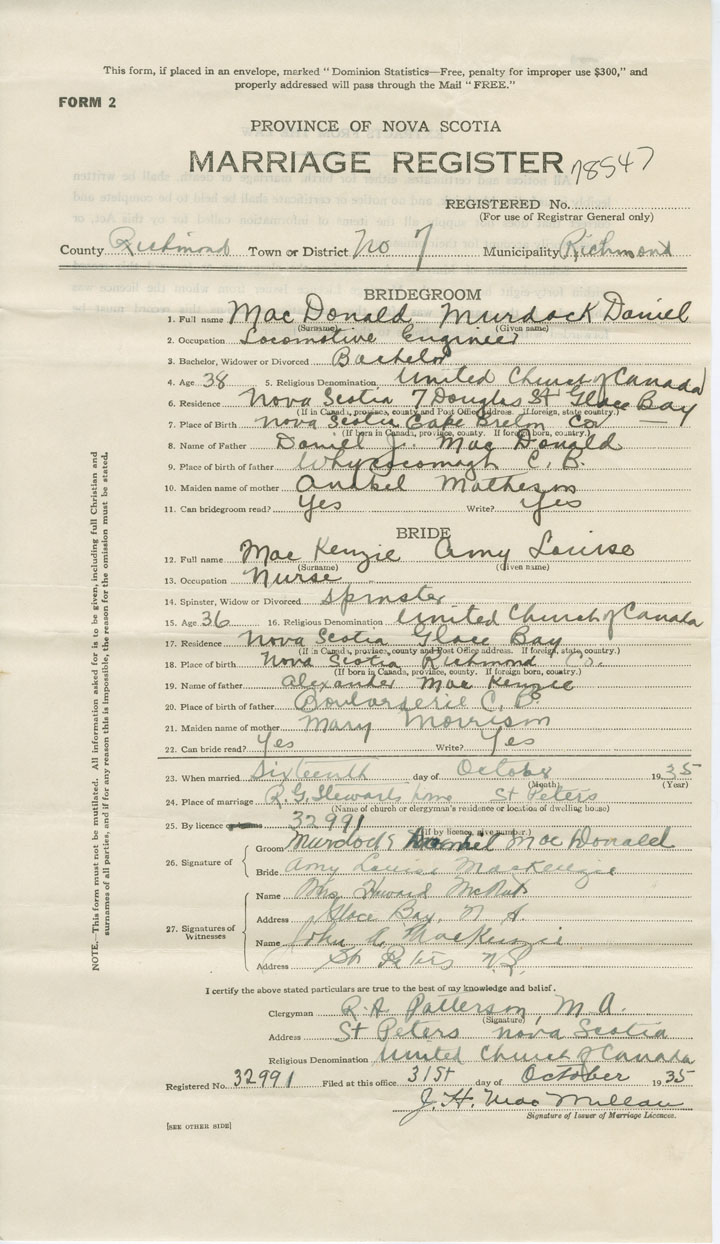 This form, if placed in an envelope, marked "Dominion Statistics—Free, penalty for improper use $300," and
properly addressed will pass through the Mail "FREE."
FORM 2
PROVINCE OF NOVA SCOTIA
MARRIAGE REGISTER 78547
REGISTERED No.
(For use of Registrar General only)
County Richmond Town or District No 7 Municipality Richmond
BRIDEGROOM
1. Full name Mac Donald Murdock Daniel
(Surname) (Given name)
2. Occupation Locomotive Engineer
3. Bachelor, Widower or Divorced Bachelor
4. Age 38 5. Religious Denomination United Church of Canada
6. Residence Nova Scotia 7 Douglas St Glace Bay
(If in Canada, province, county and Post Office address. If foreign, state country.)
7. Place of Birth Nova Scotia Cape Breton Co
(If born in Canada, province, county. If foreign born, country.)
8. Name of Father Daniel J. Mac Donald
9. Place of birth of father Whycocomagh C. B.
10. Maiden name of mother Anabel Matheson
11. Can bridegroom read? Yes Write? Yes
BRIDE
12. Full name Mac Kenzie Amy Louise
(Surname) (Given name)
13. Occupation Nurse
14. Spinster, Widow or Divorced Spinster
15. Age 36 16. Religious Denomination United Church of Canada
17. Residence Nova Scotia Glace Bay
(If in Canada, province, county and Post Office address. If foreign, state country.)
18. Place of birth Nova Scotia Richmond Co.
(If born in Canada, province, county. If foreign born, country.)
19. Name of father Alexander Mac Kenzie
20. Place of birth of father Boularderie C. B.
21. Maiden name of mother Mary Morrison
22. Can bride read? Yes Write? Yes
23. When married Sixteenth day of October 1935
(Month) (Year)
24. Place of marriage R. G. Stewarts home St Peters
(Name of church or clergyman's residence or location of dwelling house)
25. By licence 32991
(If by licence, give number.)
26. Signature of
Groom Murdock Daniel MacDonald
Bride Amy Louise MacKenzie
27. Signatures of Witnesses
Name Mrs Howard
Address Glace Bay, N. S.
Name John A. MacKenzie
Address St Peters N.S.
I certify the above stated particulars are true to the best of my knowledge and belief.
Clergyman R. A. Patterson, M. A.
(Signature)
Address St Peters Nova Scotia
Religious Denomination United Church of Canada
Registered No. 32991 Filed at this office 31st day of October 1935
J. H. Mac Millan
Signature of Issuer of Marriage Licences.
[SEE OTHER SIDE]
NOTE.—This form must not be mutilated. All information asked for is to be given, including full Christian and
surnames of all parties, and if for any reason this is impossible, the reason for the omission must be stated.